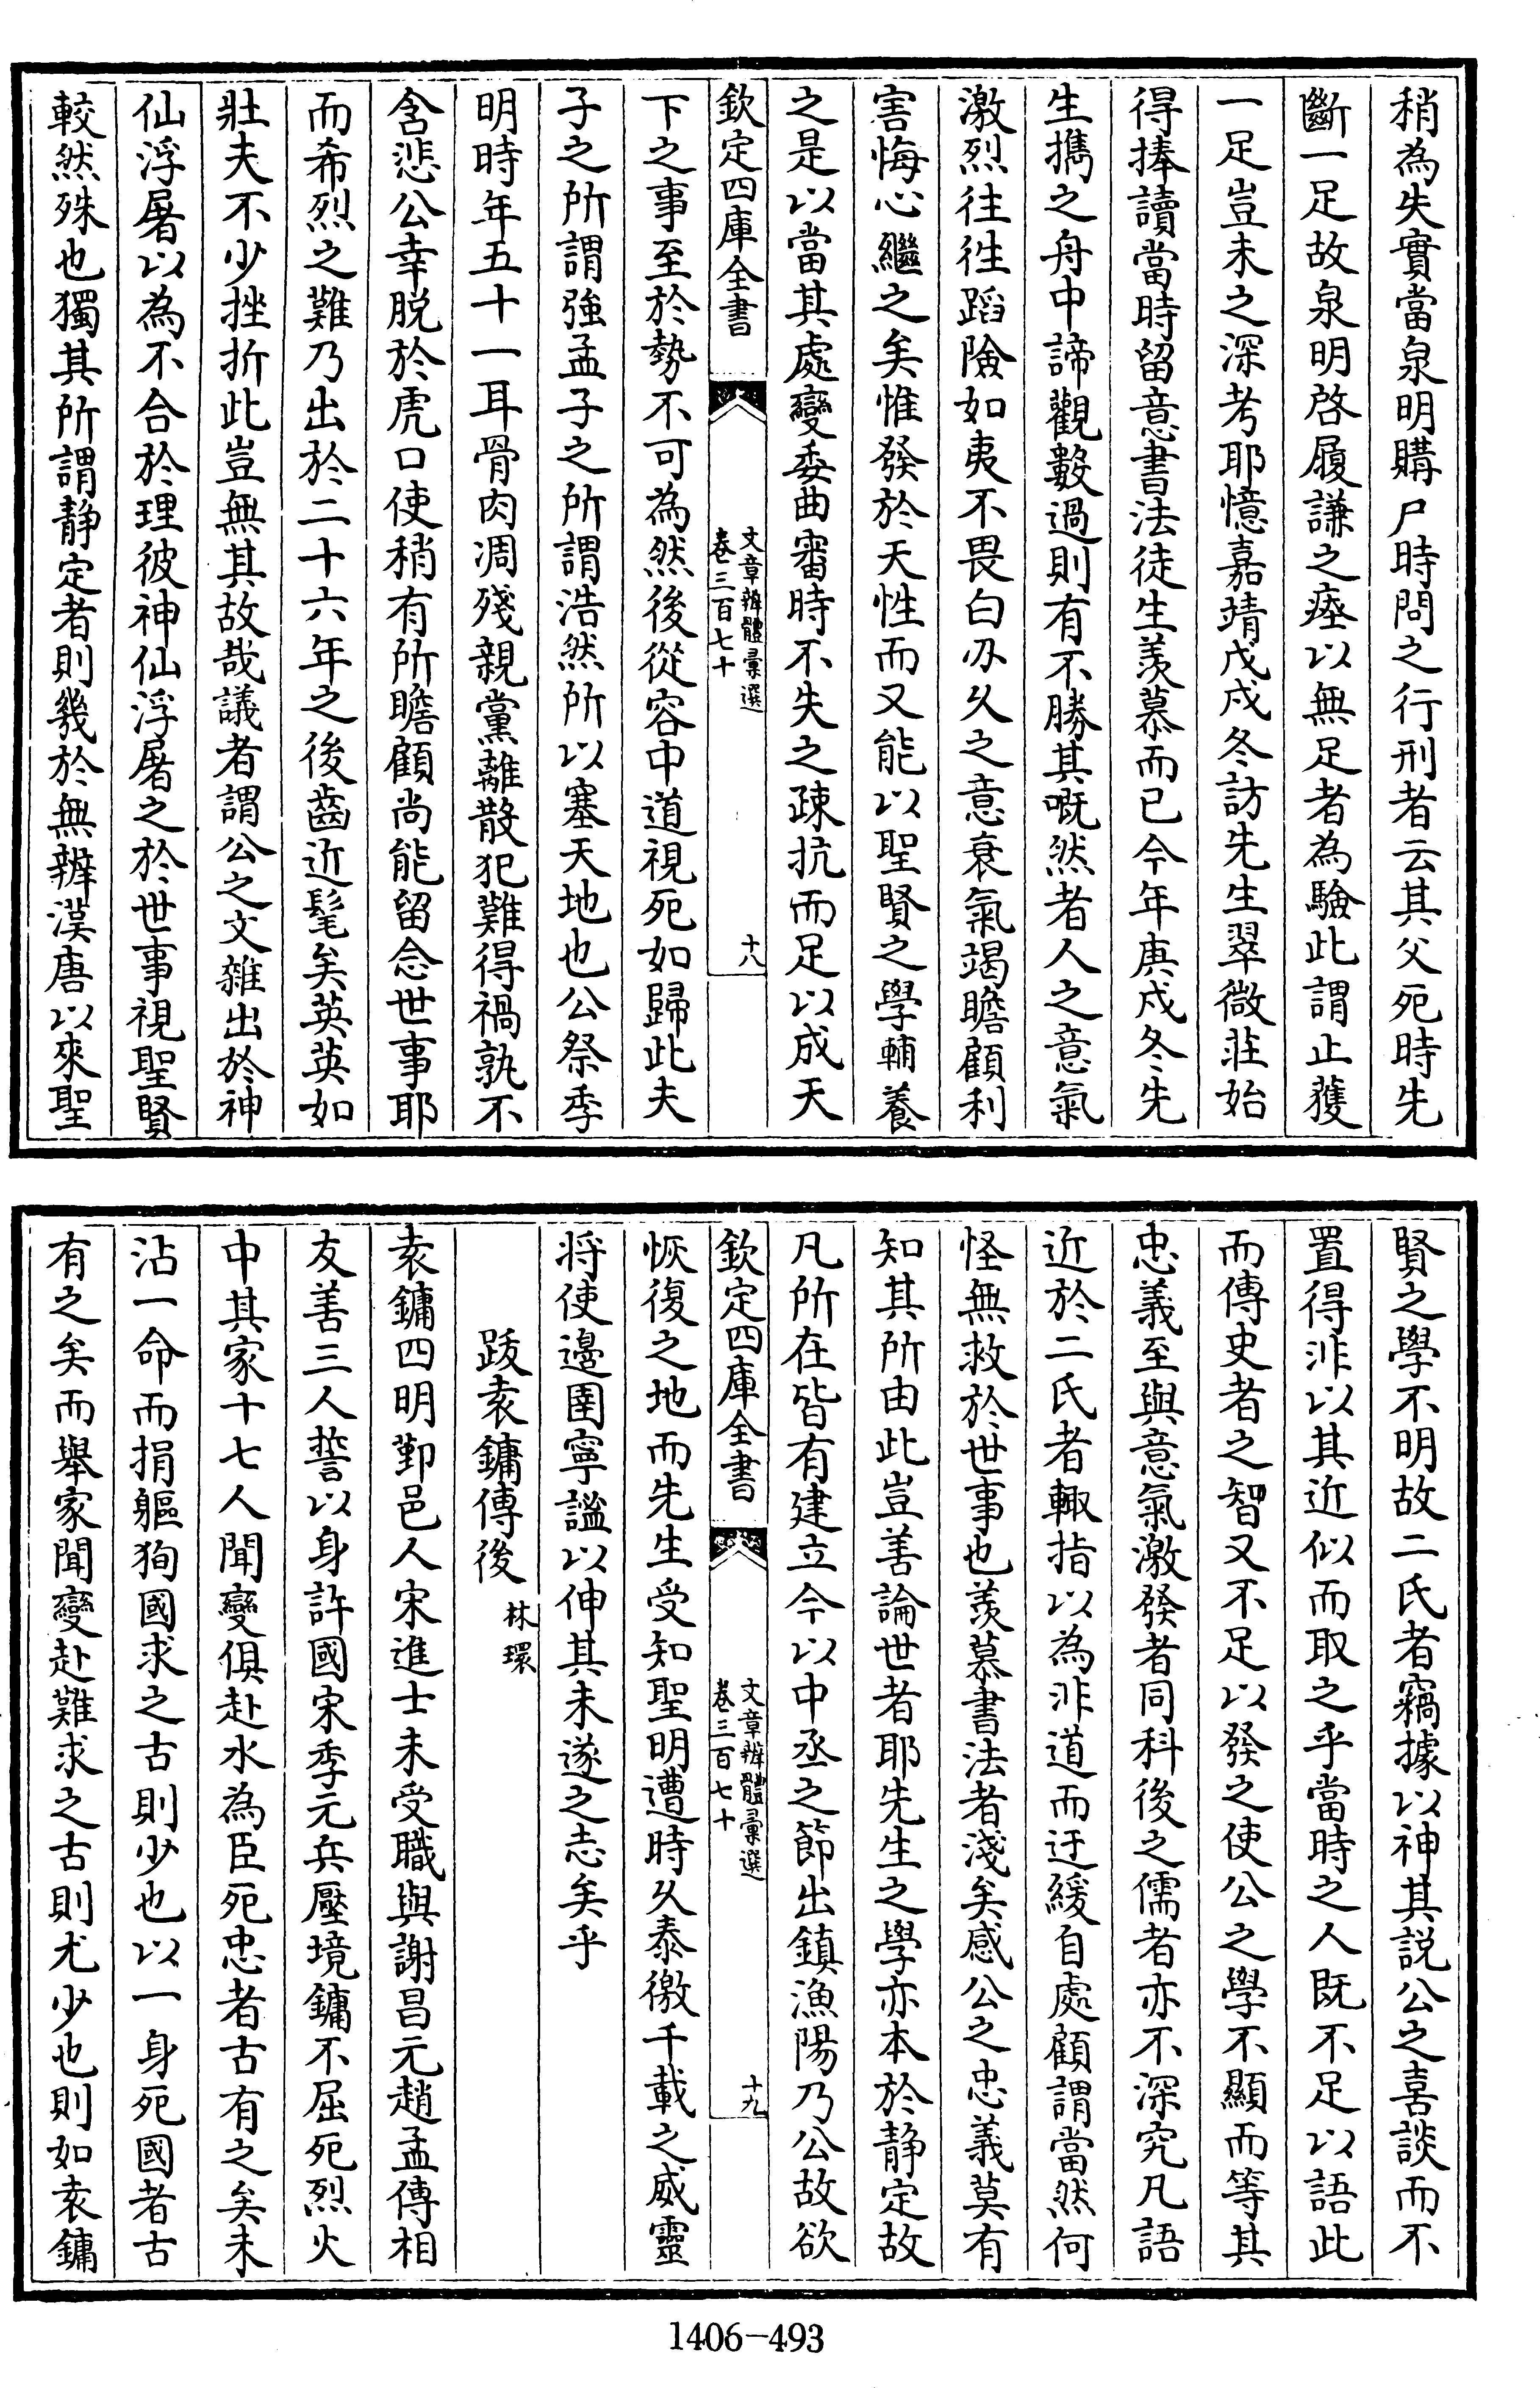 稍為失實當泉明購尸時問之行刑者云其父死時先
斷一足故泉明啓履謙之瘞以無足者為驗此謂止獲
一足豈未之深考耶憶嘉靖戊戌冬訪先生翠微莊始
得捧讀當時留意書法徒生羨慕而已今年庚戌冬先
生攜之舟中諦觀數過則有不勝其嘅然者人之意氣
激烈往徃蹈險如夷不畏白刃久之意衰氣竭瞻顧利
害悔心繼之矣惟發於天性而又能以聖賢之學輔養
之是以當其處變委曲審時不失之疎抗而足以成天
欽定四庫全書
文章辨體彙選
卷三百七十
十八
下之事至於勢不可為然後從容中道視死如歸此夫
子之所謂強孟子之所謂浩然所以塞天地也公祭季
明時年五十一耳骨肉凋殘親黨離散犯難得禍孰不
含悲公幸脫於虎口使稍有所瞻顧尚能留念世事耶
而希烈之難乃出於二十六年之後齒近髦矣英英如
壯夫不少挫折此豈無其故哉議者謂公之文雜出於神
仙浮屠以為不合於理彼神仙浮屠之於世事視聖賢
較然殊也獨其所謂静定者則幾於無辨漢唐以來聖
賢之學不明故二氏者竊據以神其説公之喜談而不
置得非以其近似而取之乎當時之人既不足以語此
而傳史者之智又不足以發之使公之學不顯而等其
忠義至與意氣激發者同科後之儒者亦不深究凡語
近於二氏者輙指以為非道而迂緩自處顧謂當然何
怪無救於世事也羨慕書法者淺矣感公之忠義莫有
知其所由此豈善論世者耶先生之學亦本於静定故
凡所在皆有建立今以中丞之節出鎮漁陽乃公故欲
欽定四庫全書
文章辨體彙選
卷三百七十
十九
恢復之地而先生受知聖明遭時久泰徼千載之威靈
将使邊圉寧謐以伸其未遂之志矣乎
跋袁鏞傳後　林環
袁鏞四明鄞邑人宋進士未受職與謝昌元趙孟傳相
友善三人誓以身許國宋季元兵壓境鏞不屈死烈火
中其家十七人聞變俱赴水為臣死忠者古有之矣未
沾一命而捐軀狥國求之古則少也以一身死國者古
有之矣而舉家聞變赴難求之古則尤少也則如袁鏞
1406-493